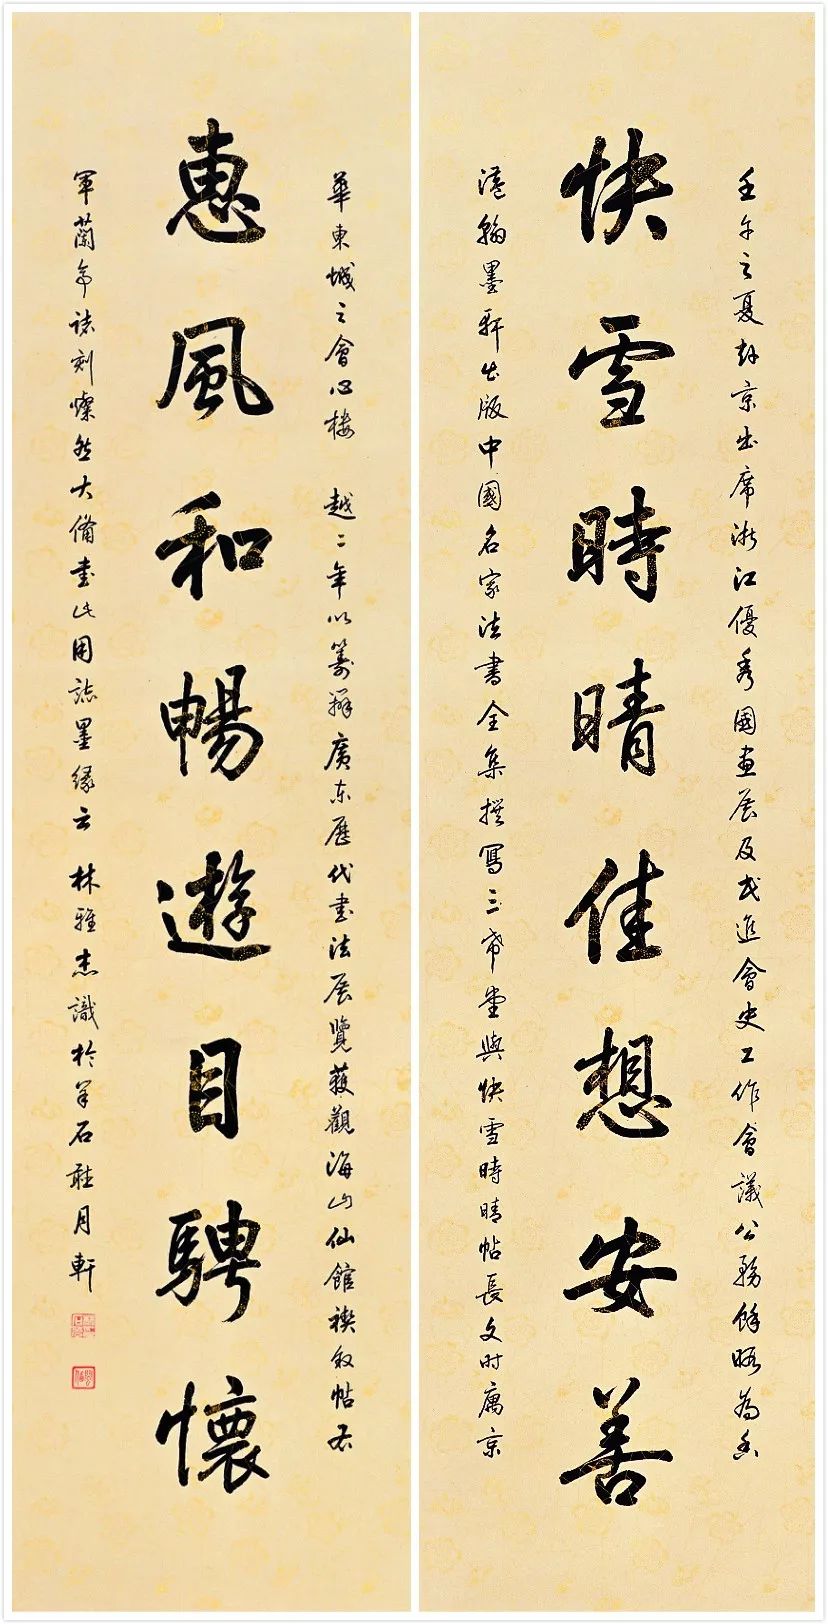 壬午之夏赴京出席浙江優秀國畫展及民進會史工作會議公務餘暇為香
快雪時晴佳想安善
港翰墨軒出版中國名家法書全集撰寫三希堂與快雪時晴帖長文时寓京
華東城之會心樓 越二年以籌辦廣东歷代书法展覽獲觀海山仙館禊叙帖右
惠風和暢遊目騁懷
軍蘭亭諸刻燦然大備书此用誌墨緣云 林雅杰識於羊石耕月軒